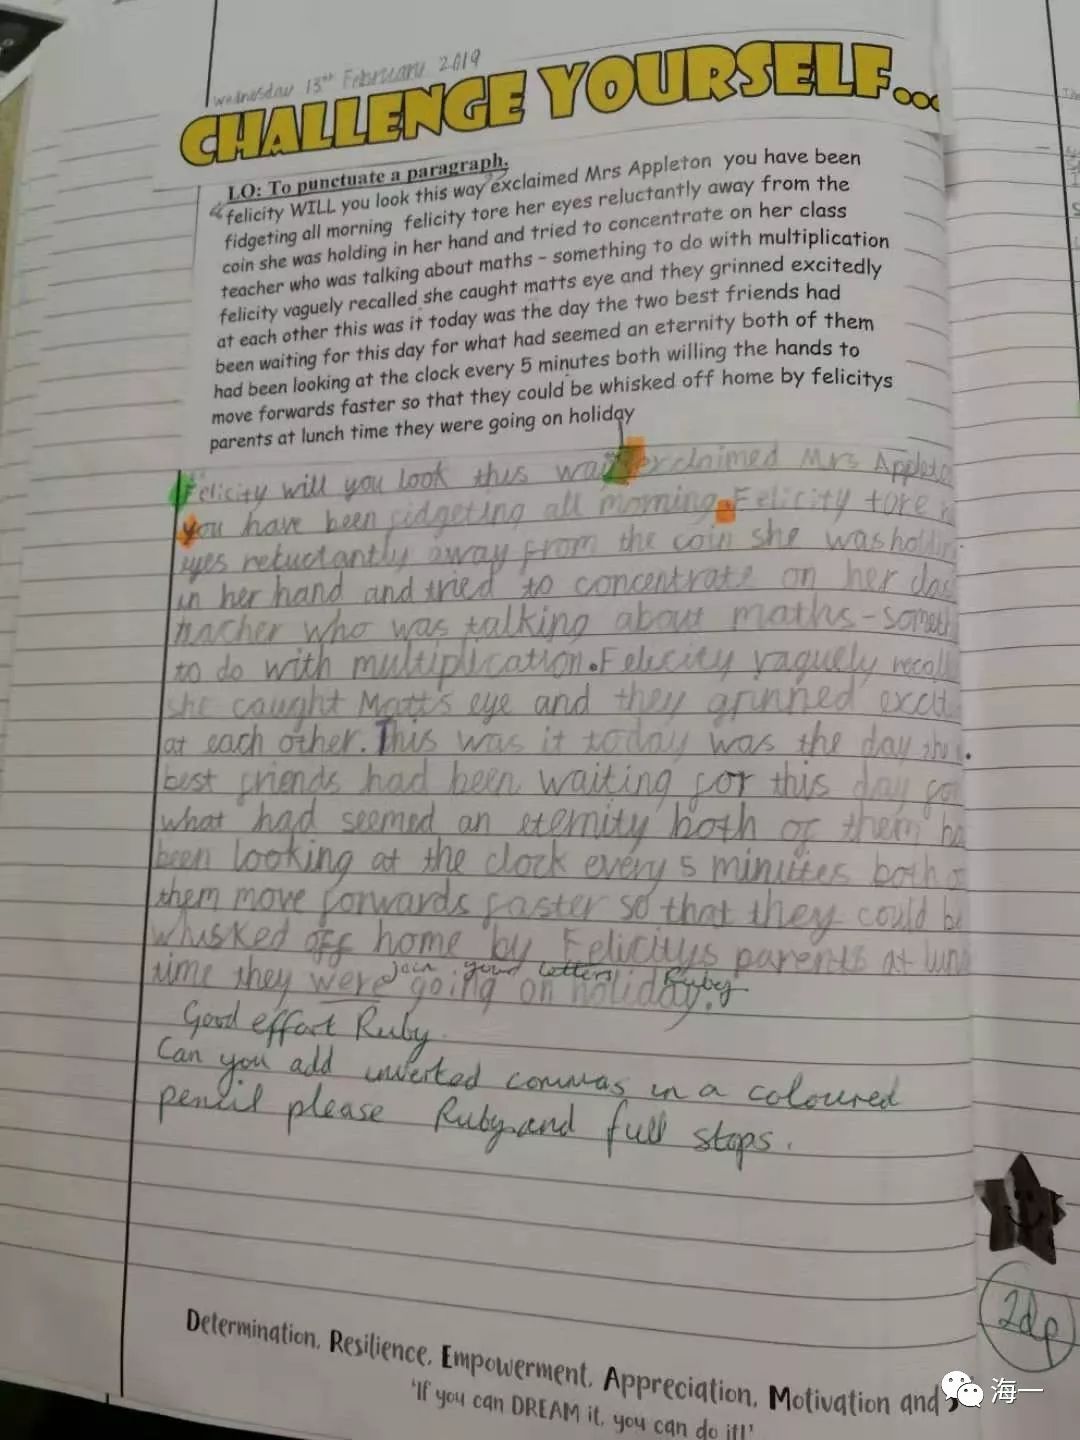 wednesday 13th February 2019
CHALLENGE YOURSELF...
LO: To punctuate a paragraph.
felicity WILL you look this way exclaimed Mrs Appleton you have been
fidgeting all morning felicity tore her eyes reluctantly away from the
coin she was holding in her hand and tried to concentrate on her class
teacher who was talking about maths – something to do with multiplication
felicity vaguely recalled she caught matts eye and they grinned excitedly
at each other this was it today was the day the two best friends had
been waiting for this day for what had seemed an eternity both of them
had been looking at the clock every 5 minutes both willing the hands to
move forwards faster so that they could be whisked off home by felicitys
parents at lunch time they were going on holiday
Felicity will you look this way exclaimed Mrs Appleto
you have been fidgeting all morning. Felicity tore
eyes reluctantly away from the coin she was holdin
in her hand and tried to concentrate on her clas
teacher who was talking about maths - someth
to do with multiplication. Felicity vaguely recall
she caught Matts eye and they grinned excit
at each other. This was it today was the day
best friends had been waiting for this day for
what had seemed an eternity both of them ha
been looking at the clock every 5 minutes both o
them move forwards faster so that they could be
whisked off home by Felicitys parents at lunc
time they were going on holiday.
join your letters Ruby
Good effort Ruby
Can you add inverted commas in a coloured
pencil please Ruby and full stops.
2dp
Determination, Resilience, Empowerment, Appreciation, Motivation and
'If you can DREAM it, you can do it!'
海一